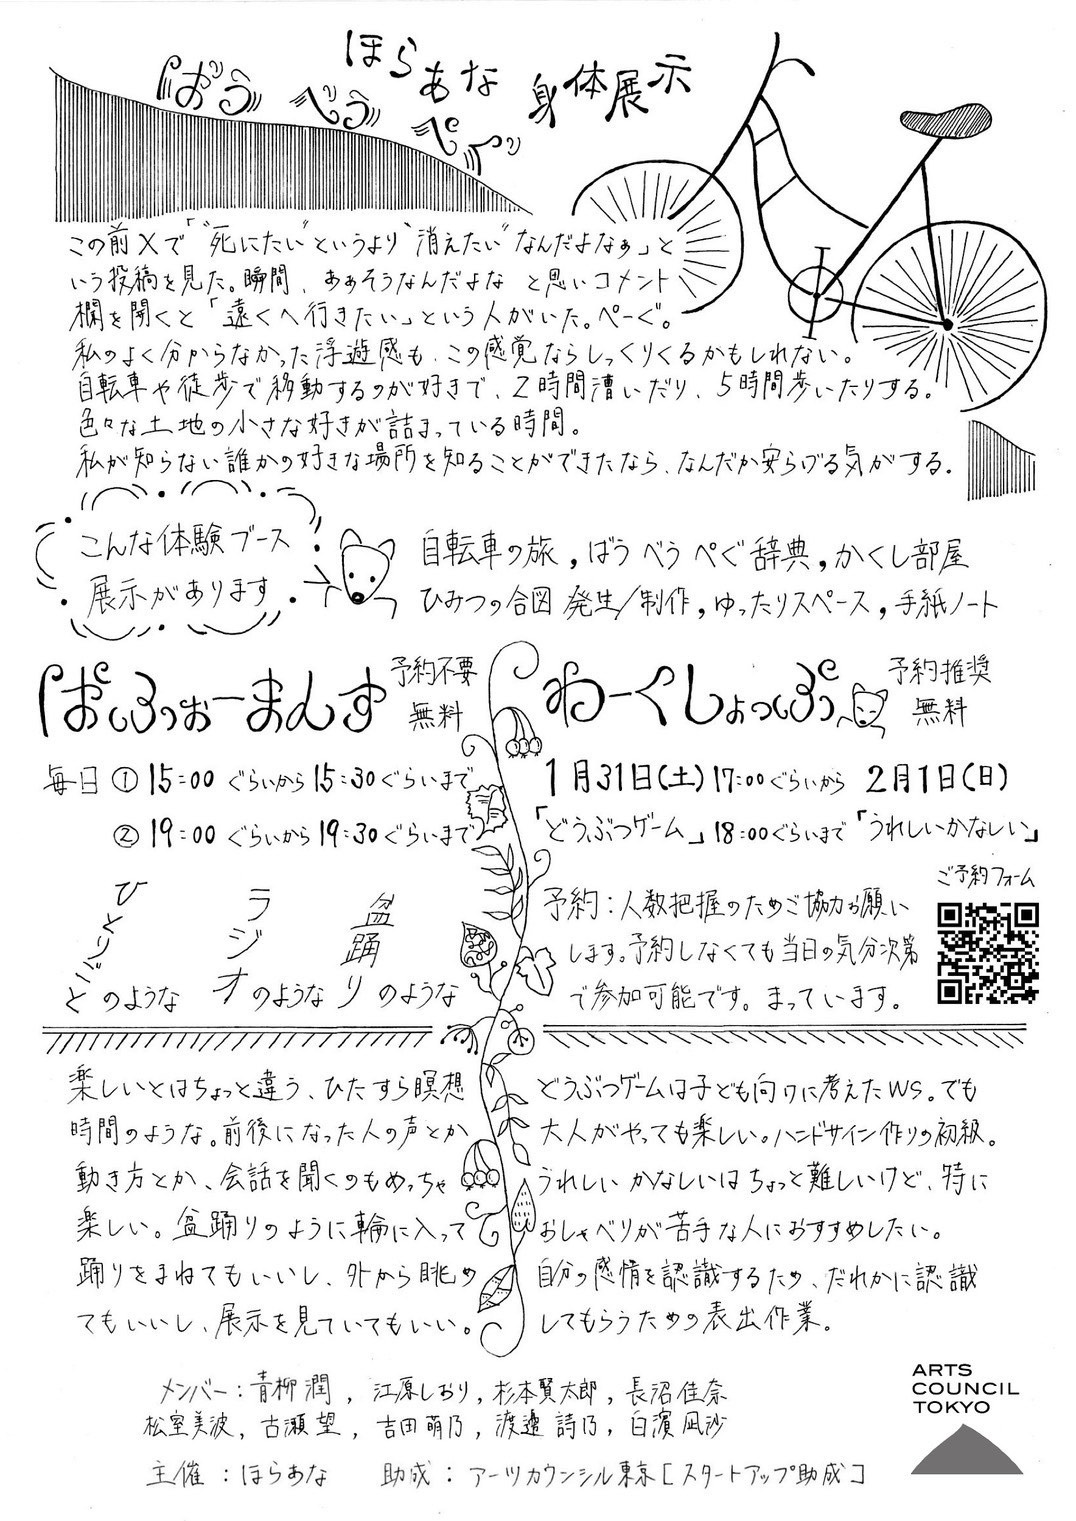 ほらあな 身体展示
ばう べう ぺぐ
この前Xで「"死にたい"というより"消えたい"なんだよなぁ」と
いう投稿を見た。瞬間、あぁそうなんだよな と思いコメント
欄を開くと「遠くへ行きたい」という人がいた。ぺーぐ。
私のよく分からなかった浮遊感も、この感覚ならしっくりくるかもしれない。
自転車や徒歩で移動するのが好きで、2時間漕いだり、5時間歩いたりする。
色々な土地の小さな好きが詰まっている時間。
私が知らない誰かの好きな場所を知ることができたなら、なんだか安らげる気がする。
こんな体験ブース
展示があります
自転車の旅,ばう べう ぺぐ辞典,かくし部屋
ひみつの合図 発生/制作,ゆったりスペース,手紙ノート
ぱふぉーまんす
予約不要
無料
毎日 ① 15:00 ぐらいから 15:30ぐらいまで
② 19:00 ぐらいから 19:30ぐらいまで
ひとりごとのような
ラジオのような
盆踊りのような
楽しいとはちょっと違う、ひたすら瞑想
時間のような。前後になった人の声とか
動き方とか、会話を聞くのもめっちゃ
楽しい。盆踊りのように輪に入って
踊りをまねてもいいし、外から眺め
てもいいし、展示を見ていてもいい。
わーくしょっぷ
予約推奨
無料
1月31日(土) 17:00ぐらいから 2月1日(日)
「どうぶつゲーム」18:00ぐらいまで「うれしいかなしい」
ご予約フォーム
予約:人数把握のためご協力お願い
します。予約しなくても当日の気分次第
で参加可能です。まっています。
どうぶつゲームは子ども向けに考えたWS。でも
大人がやっても楽しい。ハンドサイン作りの初級。
うれしい かなしいは ちょっと難しいけど、特に
おしゃべりが苦手な人におすすめしたい。
自分の感情を認識するため、だれかに認識
してもらうための表出作業。
メンバー:青柳潤,江原しおり,杉本賢太郎,長沼佳奈
松室美波,古瀬望,吉田萌乃,渡邉詩乃,白濱凪沙
主催:ほらあな 助成:アーツカウンシル東京[スタートアップ助成]
ARTS
COUNCIL
TOKYO